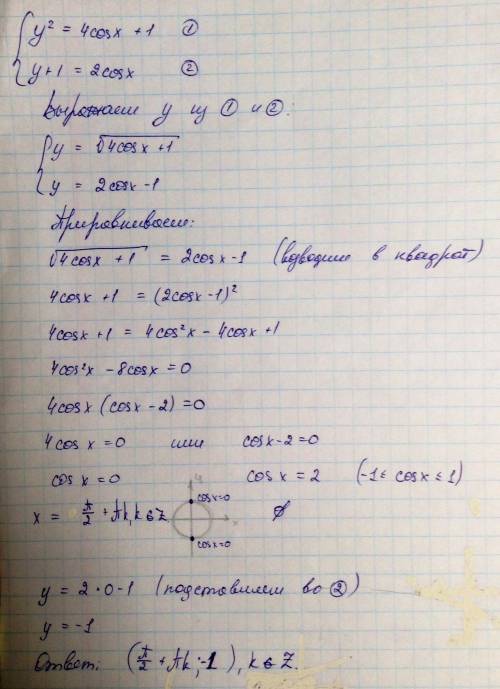 y² = 4cosx + 1 ①
y+1 = 2cosx ②
Выражаем y из ① и ②:
y = √4cosx + 1
y = 2cosx - 1
Приравниваем:
√4cosx + 1 = 2cosx - 1 (возводим в квадрат)
4cosx + 1 = (2cosx - 1)²
4cosx + 1 = 4cos²x - 4cosx + 1
4cos²x - 8cosx = 0
4cosx (cosx - 2) = 0
4cosx = 0 или cosx - 2 = 0
cosx = 0 cosx = 2 (-1 ≤ cosx ≤ 1)
cosx=0
x = π/2 + πk, k ∈ Z x ∅
cosx=0
y = 2·0-1 (подставляем во ②)
y = -1
Ответ: (π/2 + πk; -1), k ∈ Z.